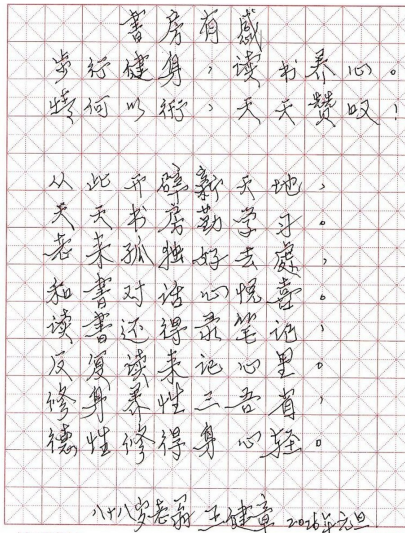 書房有感
步行健身，读书养心。
情何以衍，天天赞叹！
从此开辟新天地，
天天书房勤学习。
老来孤独好去處，
和書对话心悦喜。
读書还得录笔记，
反复读来记心里。
修身养性三吾省，
德性修得身心轻。
八十八岁老翁 王健章 2026年元旦